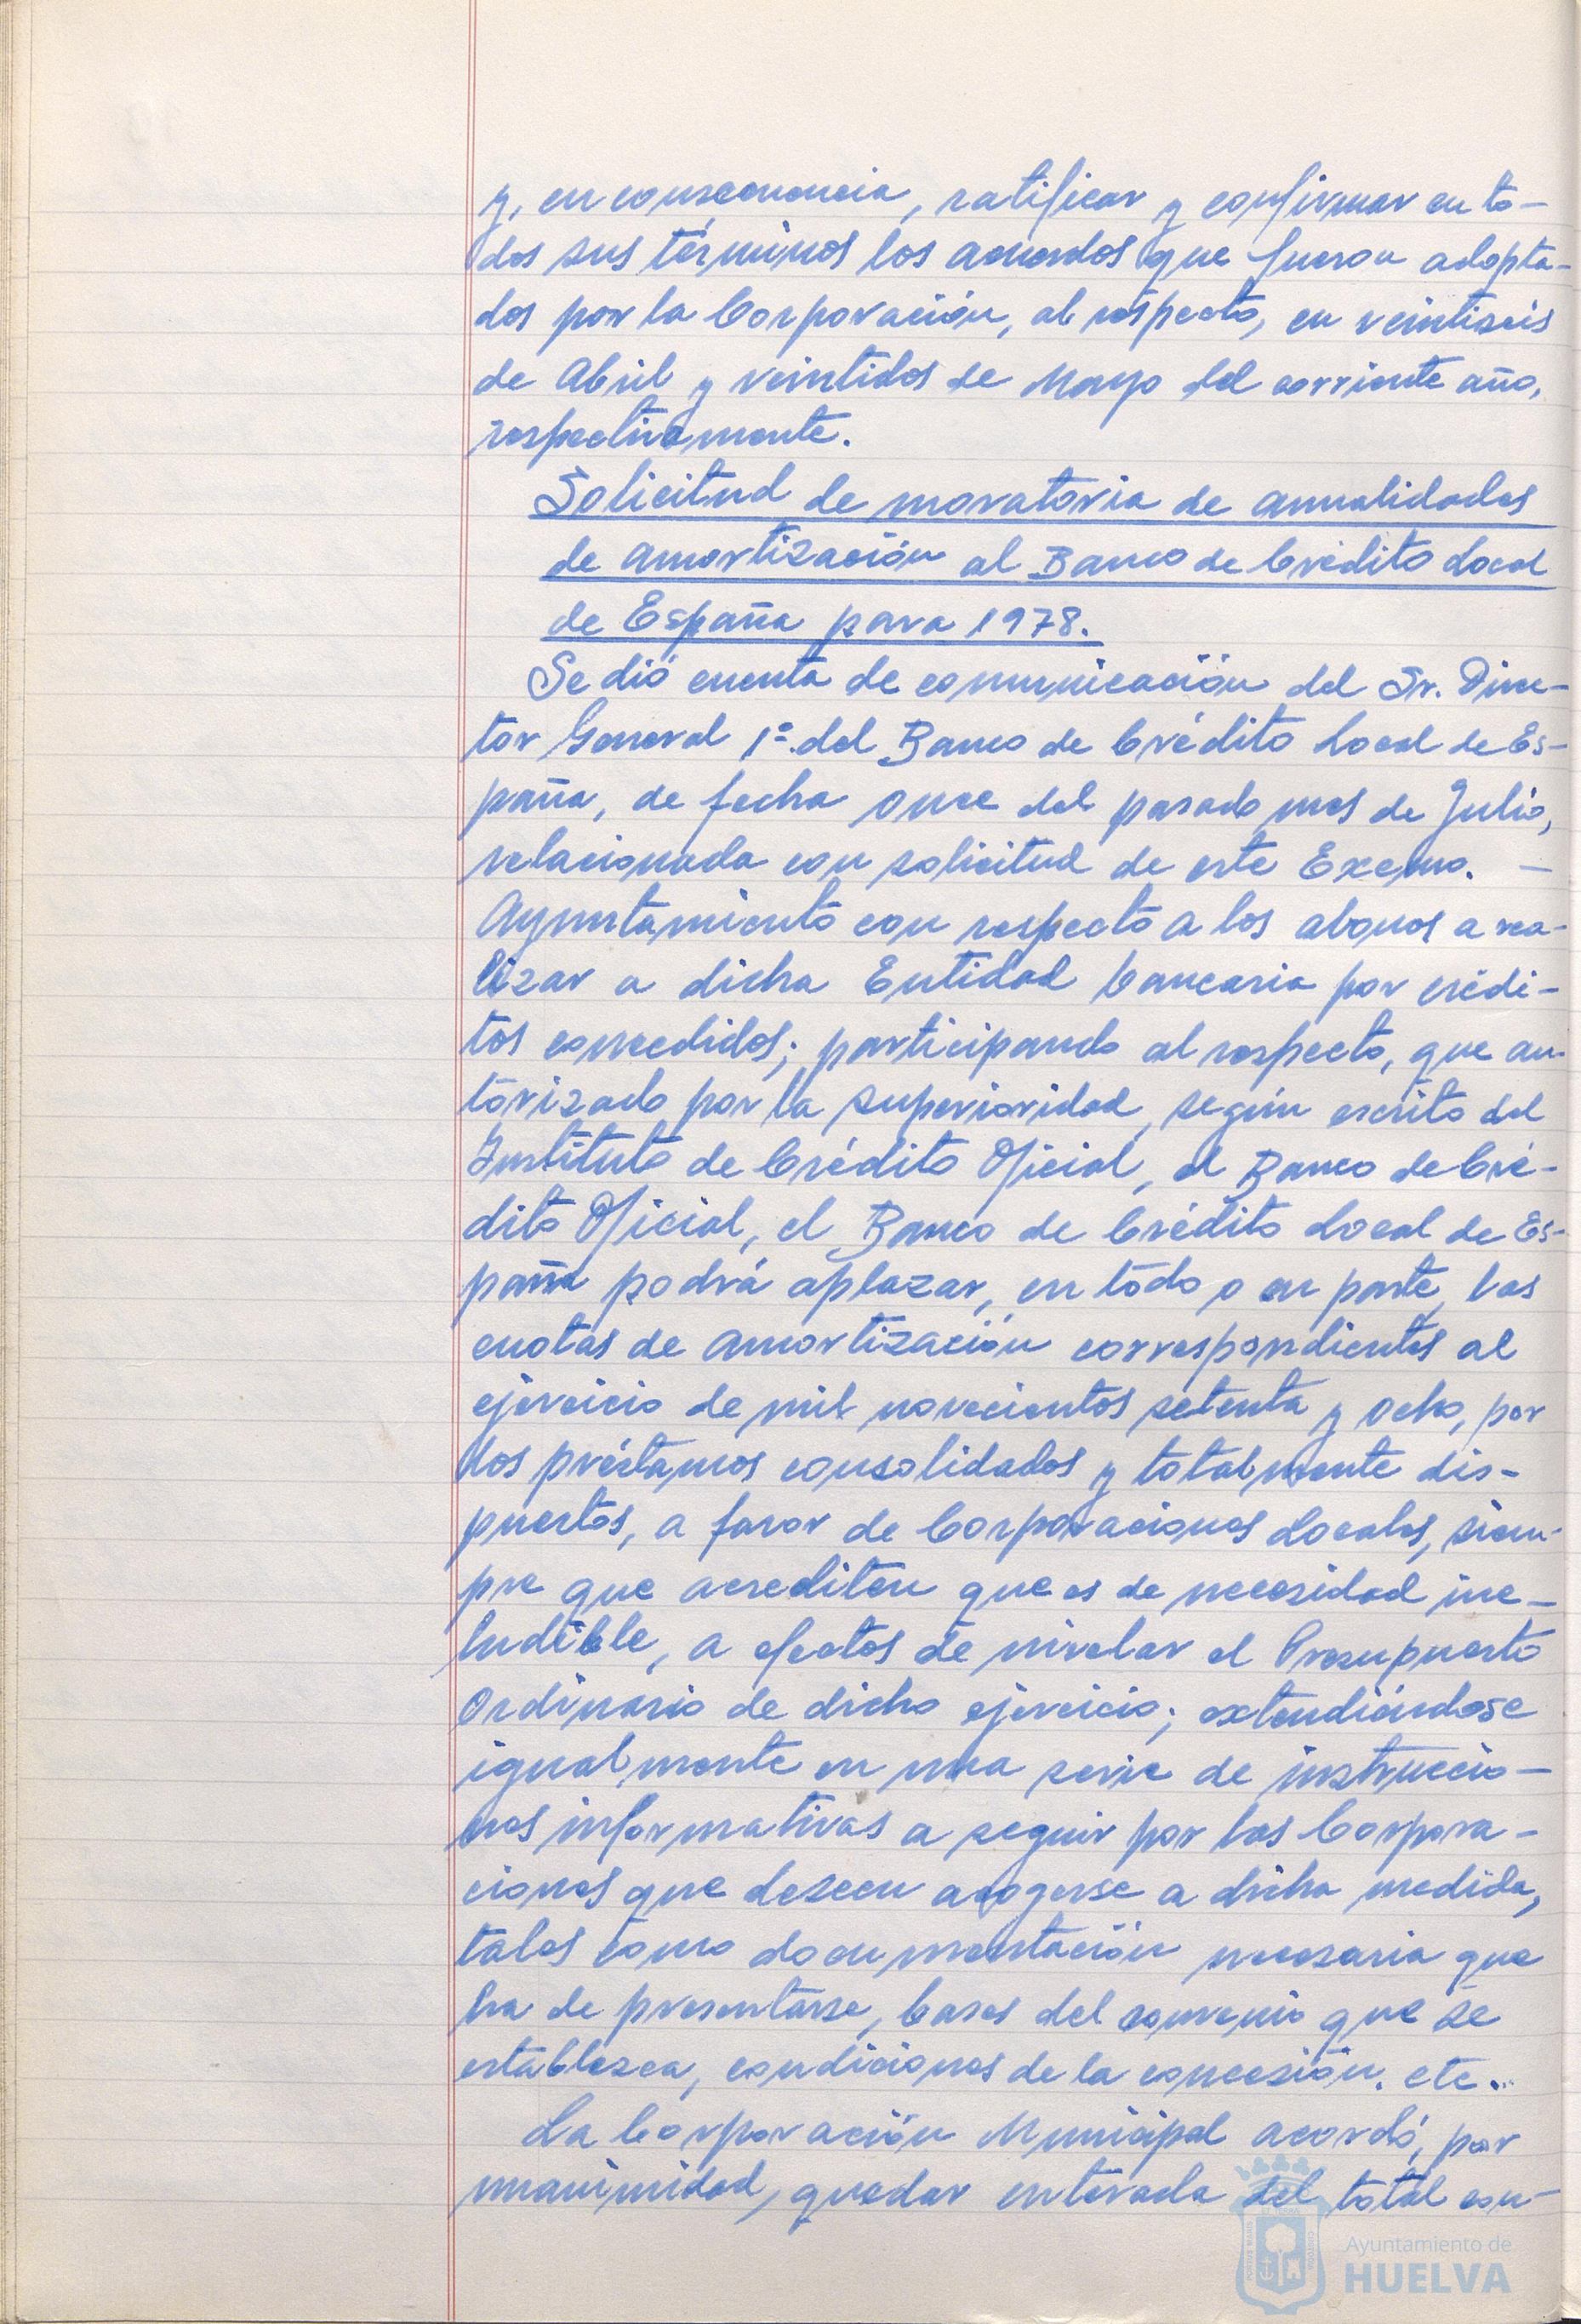 y, en consecuencia, ratificar y confirmar en to-
dos sus términos los acuerdos que fueron adopta-
dos por la Corporación, al respecto, en veintiseis
de Abril y veintidos de Mayo del corriente año,
respectivamente.
Solicitud de moratoria de anualidades
de amortización al Banco de Crédito Local
de España para 1978.
Se dió cuenta de comunicación del Sr. Direc-
tor General 1º. del Banco de Crédito Local de Es-
paña, de fecha once del pasado mes de Julio,
relacionada con solicitud de este Excmo. -
Ayuntamiento con respecto a los abonos a rea-
lizar a dicha Entidad bancaria por crédi-
tos concedidos; participando al respecto, que au-
torizado por la superioridad, según escrito del
Instituto de Crédito Oficial, el Banco de Cré-
dito Oficial, el Banco de Crédito Local de Es-
paña podrá aplazar, en todo o en parte, las
cuotas de amortización correspondientes al
ejercicio de mil novecientos setenta y ocho, por
los préstamos consolidados y totalmente dis-
puestos, a favor de Corporaciones Locales, siem-
pre que acrediten que es de necesidad ine-
ludible, a efectos de nivelar el Presupuesto
Ordinario de dicho ejercicio; extendiéndose
igualmente en una serie de instruccio-
nes informativas a seguir por las Corpora-
ciones que deseen acogerse a dicha medida,
tales como documentación necesaria que
ha de presentarse, bases del convenio que se
establezca, condiciones de la concesión. etc...
La Corporación Municipal acordó, por
unanimidad, quedar enterada del total con-
Ayuntamiento de
HUELVA